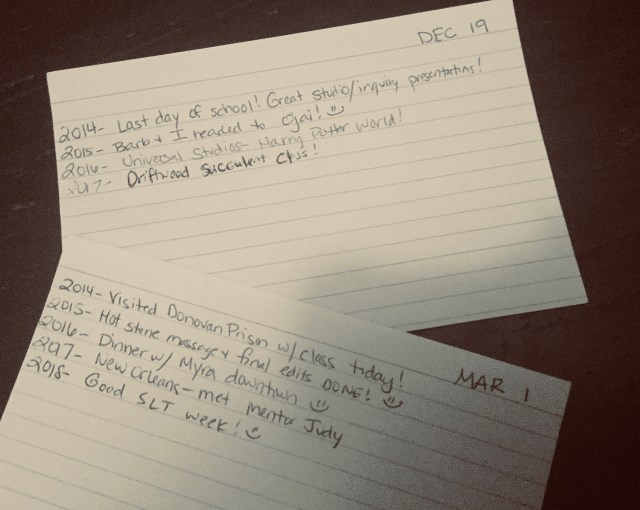 DEC 19
2014- Last day of school! Great studio/inquiry presentations!
2015- Barb & I headed to Ojai! :)
2016- Universal Studios- Harry Potter World!
2017- Driftwood Succulent Class!
MAR 1
2014- Visited Donovan Prison w/ class today!
2015- Hot stone message & final edits DONE! :)
2016- Dinner w/ Myra downtown :)
2017- New Orleans- met mentor Judy
2018- Good SLT week! :)